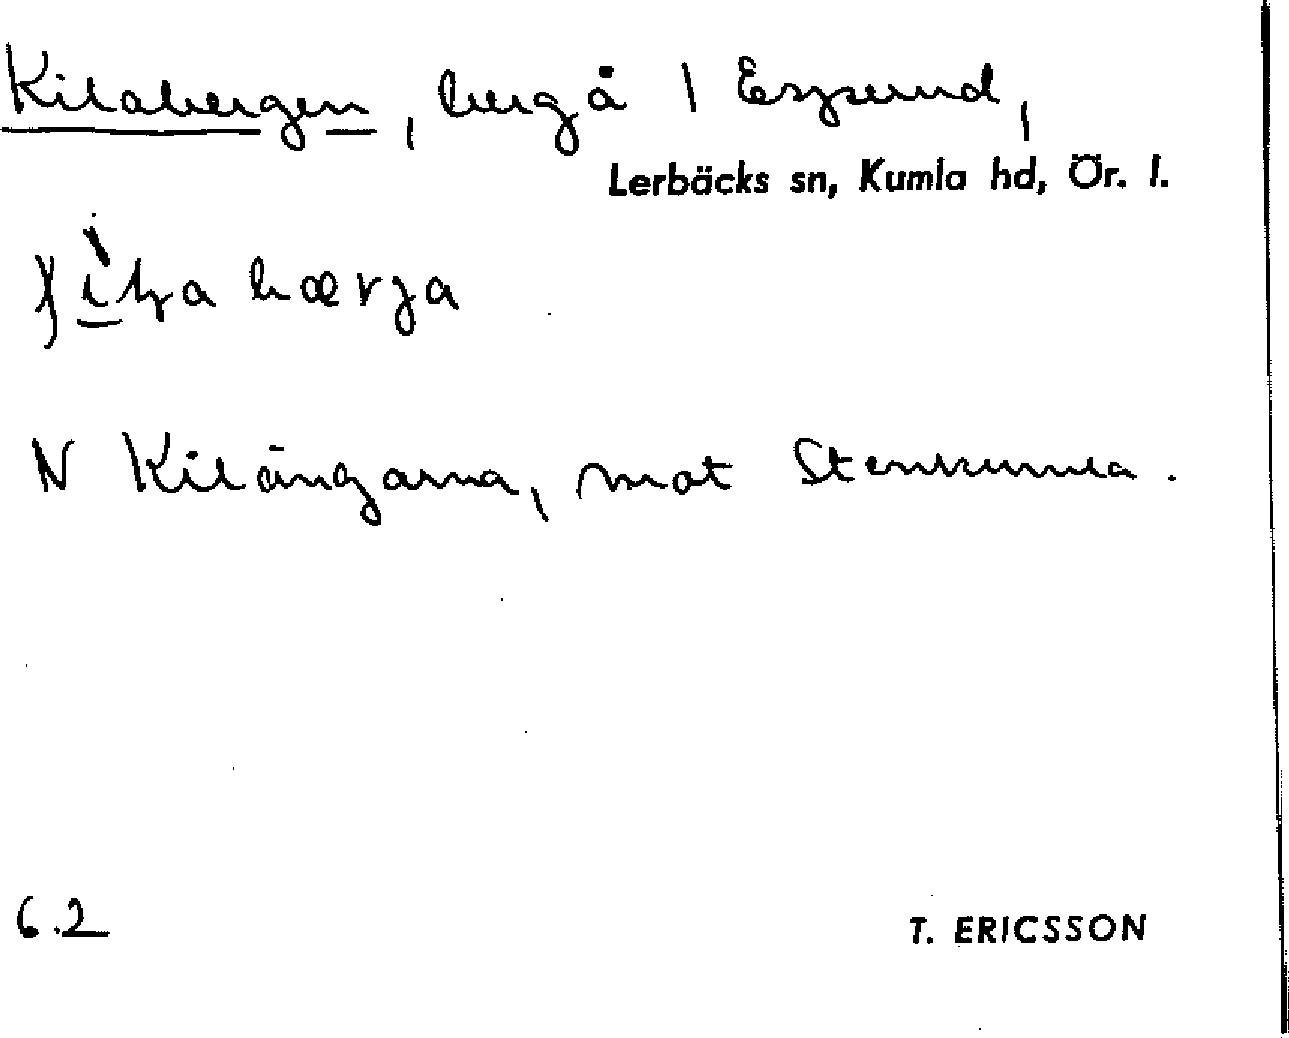 Kilabergen, berg å 1 Espsund,
Lerbäcks sn, Kumla hd, Ör. l.
bærja
N Kilängarna, mot Stenkumla.
6.2
T. ERICSSON